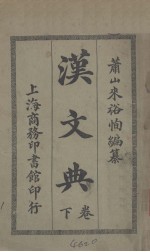 蕭山來裕恂編纂
漢文典
卷下
上海商務印書館印行